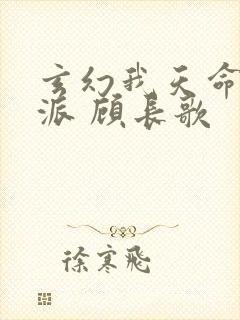 玄幻我天命
派 顾长歌
徐寒飛